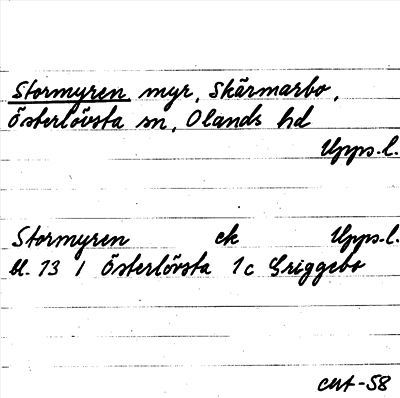 Stormyren myr, Skärmarbo,
Österlövsta sn, Olands hd
Upps.l.
Stormyren ek Upps.l.
Bl. 13 I Österlövsta 1c Griggebo
-58